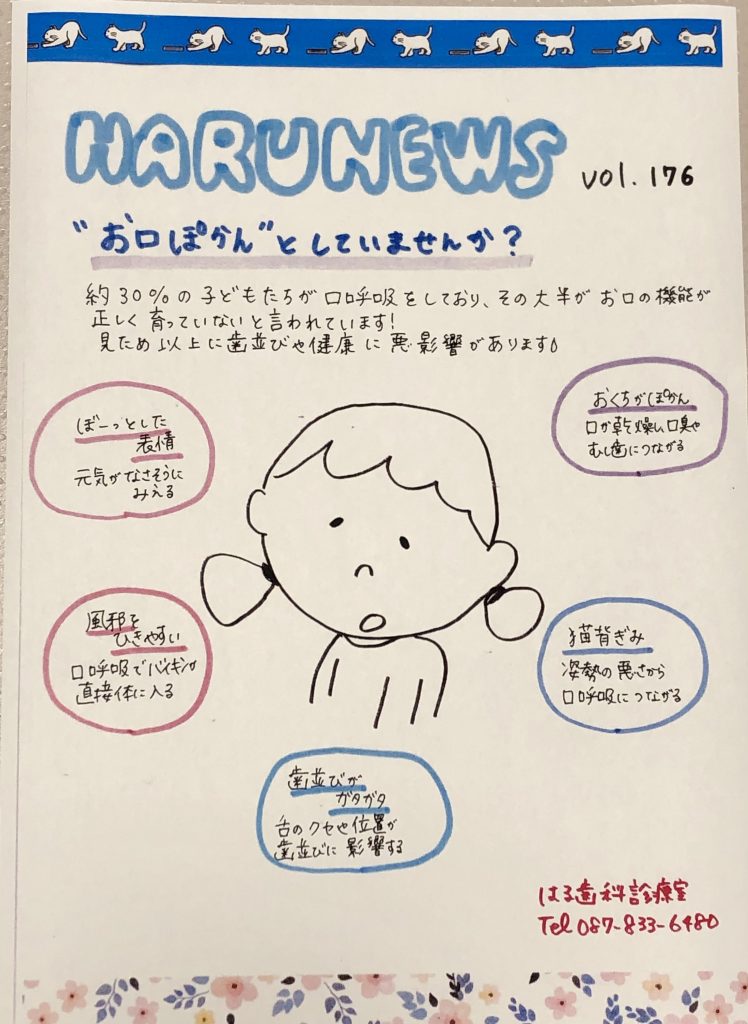 HARUNEWS vol.176
"お口ぽかん"としていませんか？
約30%の子どもたちが口呼吸をしており、その大半がお口の機能が
正しく育っていないと言われています！
見ため以上に歯並びや健康に悪影響があります。
ぼーっとした
表情
元気がなさそうに
みえる
おくちがぽかん
口が乾燥し、口臭や
むし歯につながる
風邪を
ひきやすい
口呼吸でバイキンが
直接体に入る
猫背ぎみ
姿勢の悪さから
口呼吸につながる
歯並びが
ガタガタ
舌のクセや位置が
歯並びに影響する
はる歯科診療室
Tel 087-833-6480